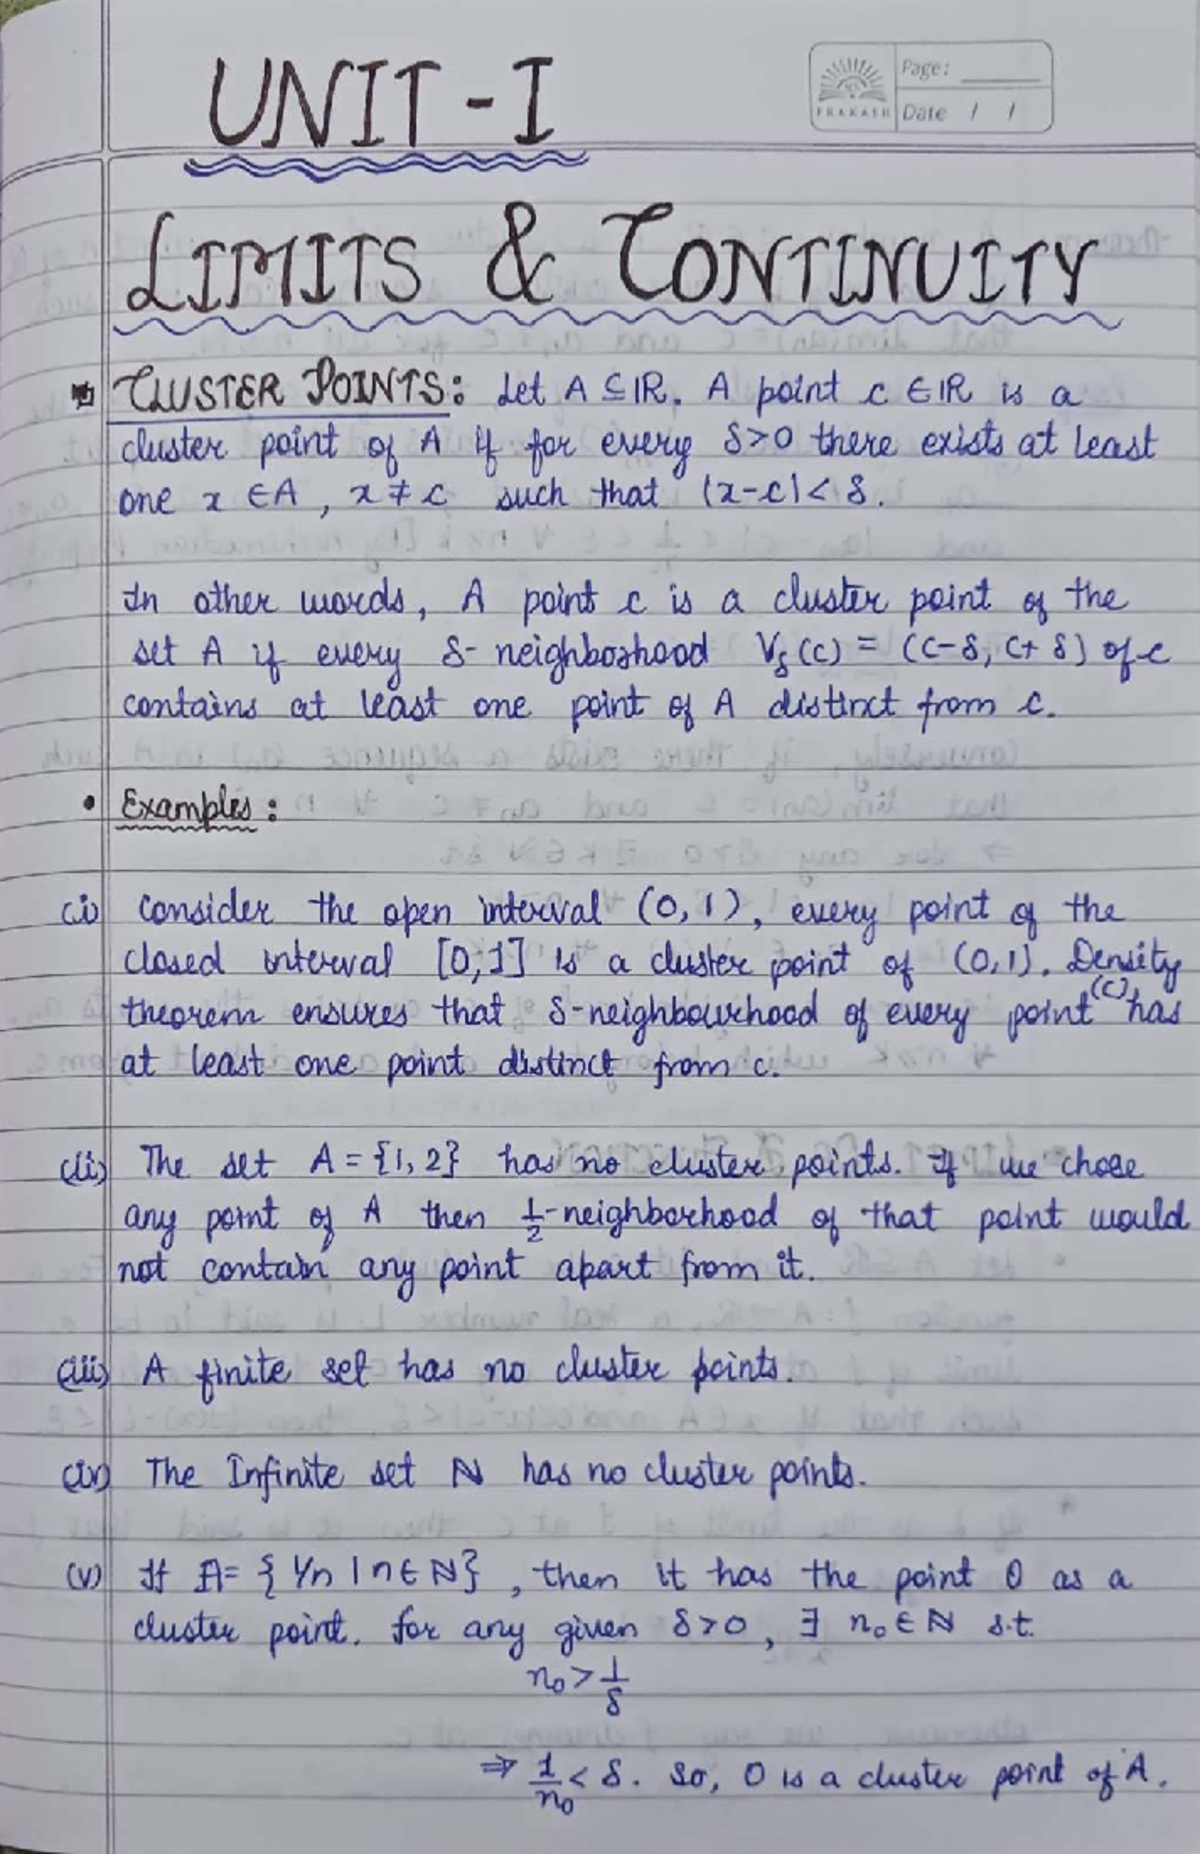 UNIT-I
PRAKASH
Page:
Date / /
LIMITS & CONTINUITY
CLUSTER POINTS: Let A ⊆ IR. A point c ∈ IR is a
cluster point of A if for every δ>0 there exists at least
one x ∈ A, x ≠ c such that |x-c| < δ.
In other words, A point c is a cluster point of the
set A if every δ-neighborhood Vδ(c) = (c-δ, c+δ) of c
contains at least one point of A distinct from c.
• Examples:
(i) Consider the open interval (0,1), every point of the
closed interval [0,1] is a cluster point of (0,1). Density
theorem ensures that δ-neighbourhood of every point (c) has
at least one point distinct from c.
(ii) The set A = {1,2} has no cluster points. If we chose
any point of A then 1/2-neighborhood of that point would
not contain any point apart from it.
(iii) A finite set has no cluster points.
(iv) The Infinite set ℕ has no cluster points.
(v) If A = {1/n | n ∈ ℕ}, then it has the point 0 as a
cluster point. for any given δ>0, ∃ n₀ ∈ ℕ s.t.
n₀ > 1/δ
⇒ 1/n₀ < δ. So, 0 is a cluster point of A.